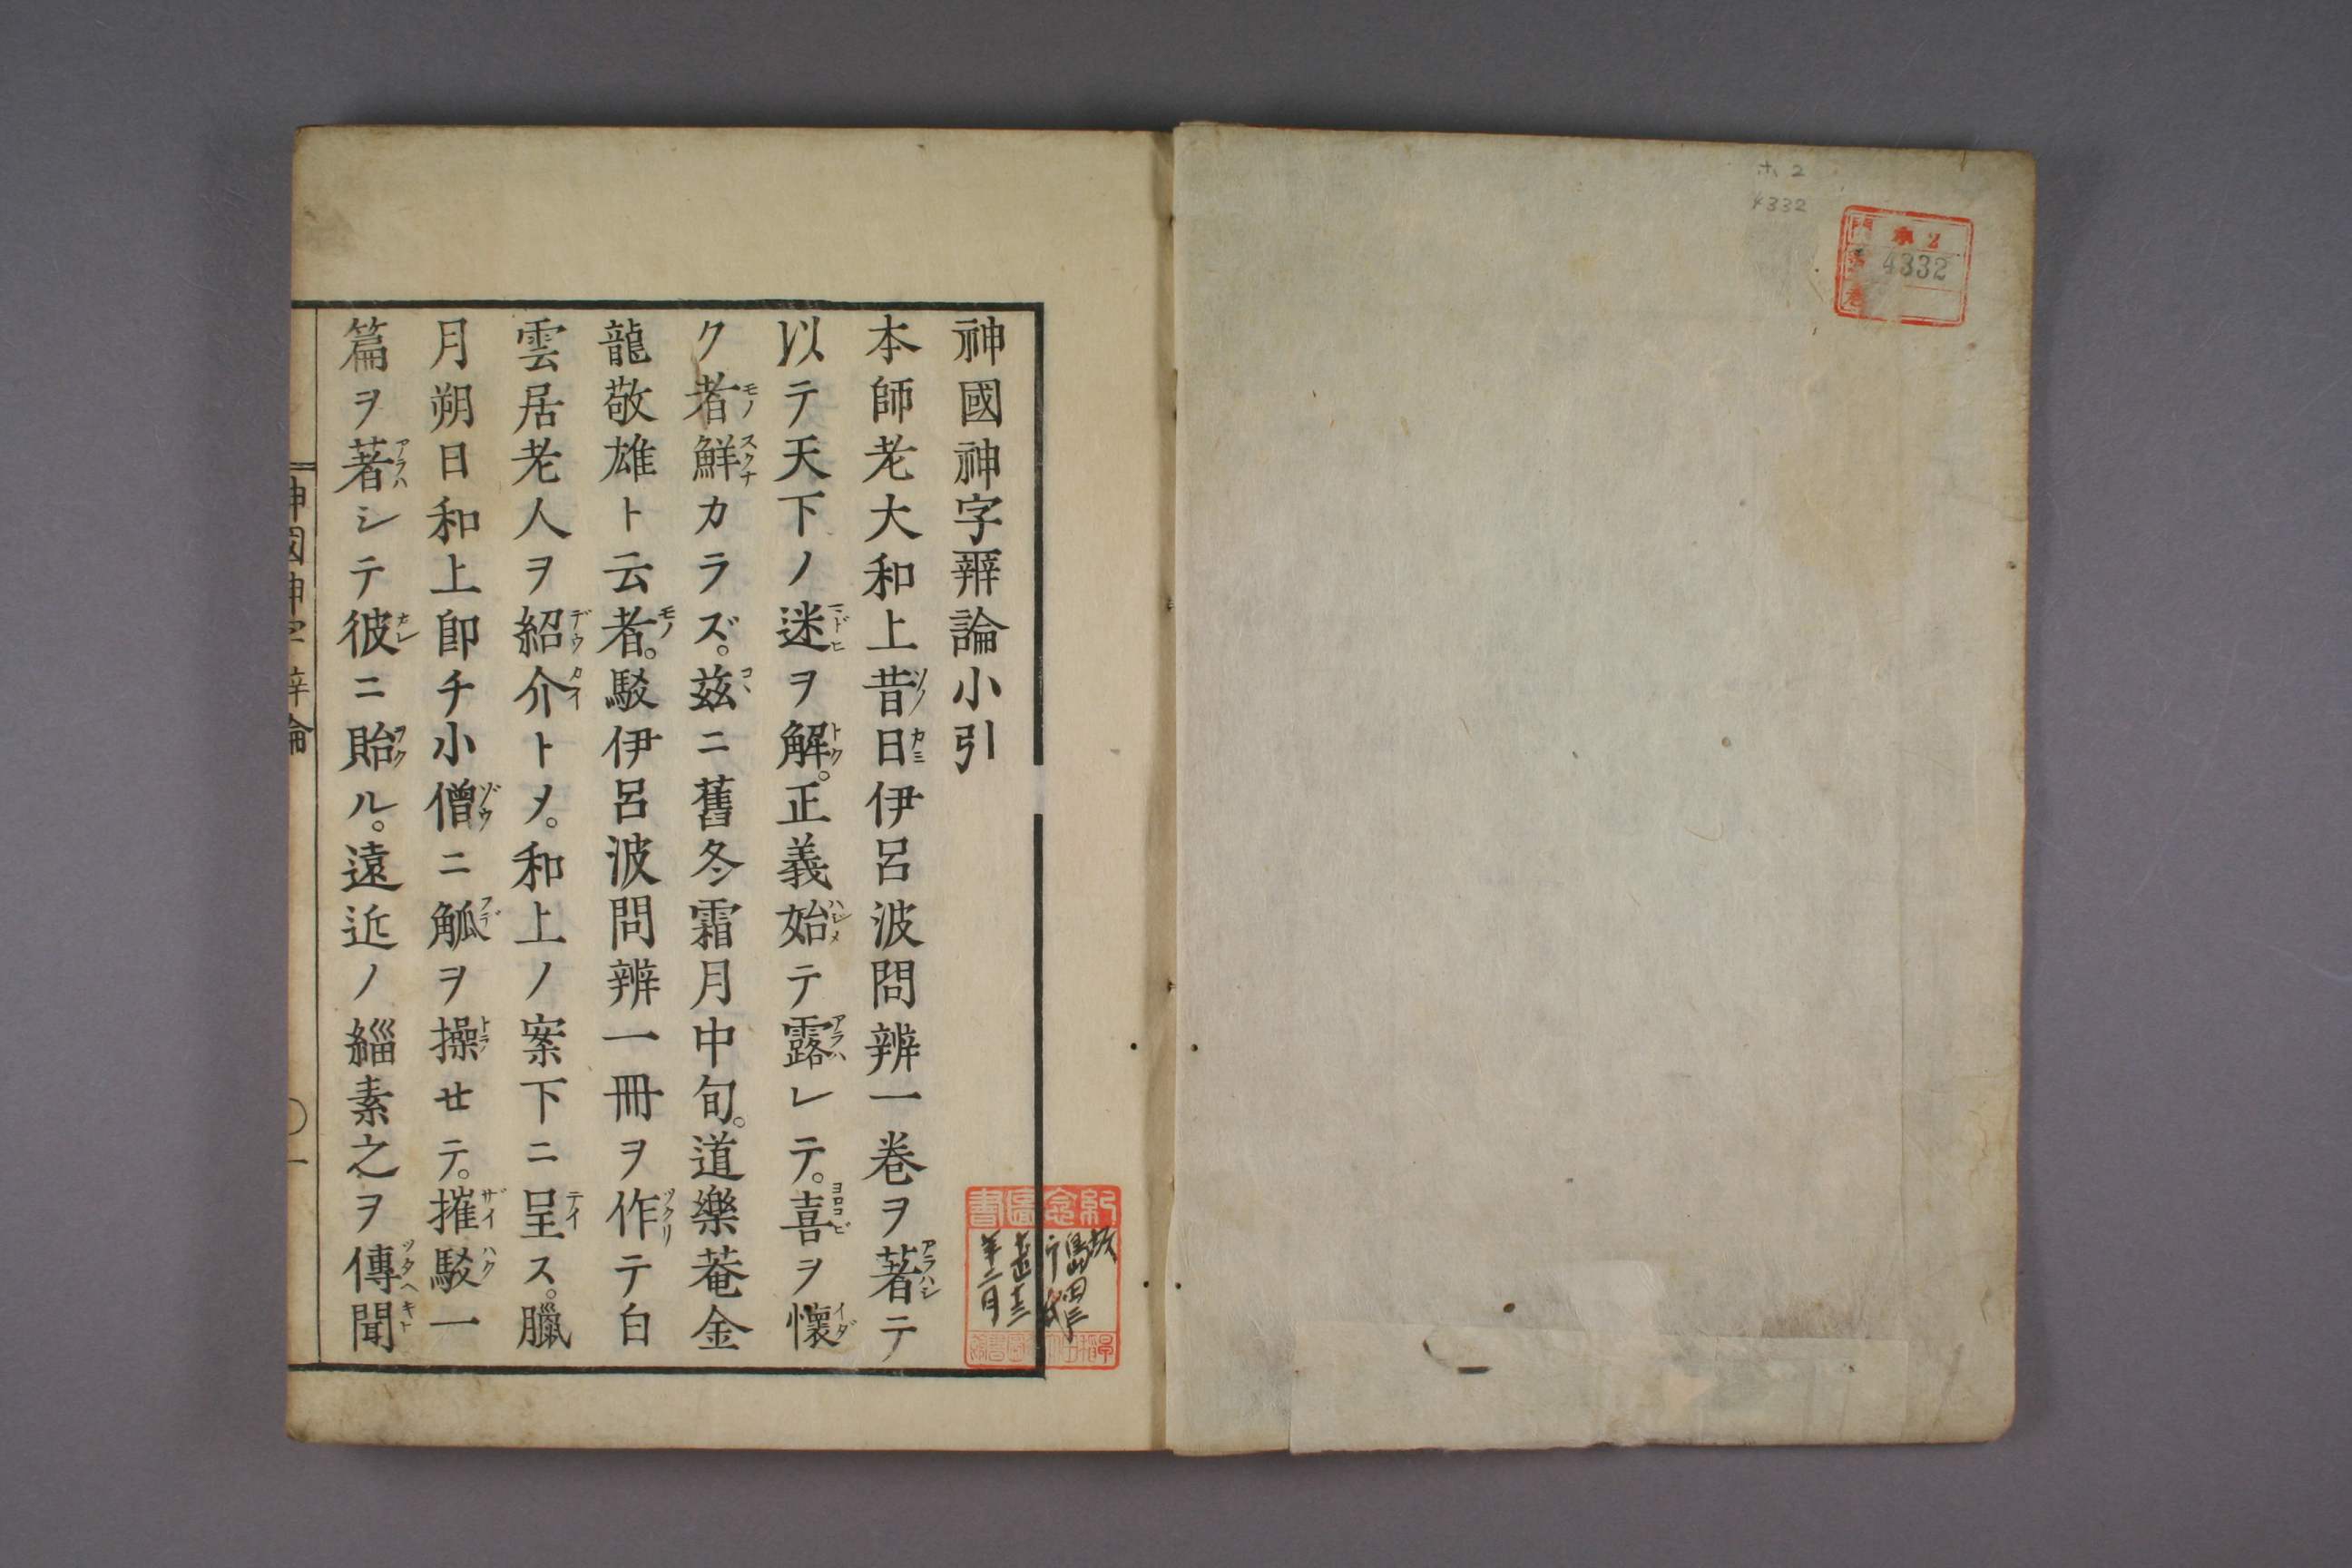 ホ2
4332
門 ホ2
號 4332
卷
神國神字辨論小引
本師老大和上昔日伊呂波問辨一卷ヲ著テ
以テ天下ノ迷ヲ解。正義始テ露レテ。喜ヲ懷
ク者鮮カラズ。茲ニ舊冬霜月中旬。道樂菴金
龍敬雄ト云者。駁伊呂波問辨一冊ヲ作テ白
雲居老人ヲ紹介トメ。和上ノ案下ニ呈ス。臘
月朔日和上卽チ小僧ニ觚ヲ操セテ。摧駁一
篇ヲ著シテ彼ニ貽ル。遠近ノ緇素之ヲ傳聞
神國神字辨論
〇一
紀念圖書